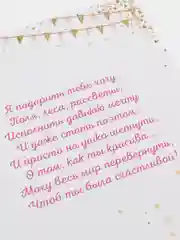 Я подарить тебе хочу
Поля, леса, рассветы,
Исполнить давнюю мечту
И даже стать поэтом.
И просто на ушко шепнуть
О том, как ты красива...
Могу весь мир перевернуть,
Чтоб ты была счастливой!